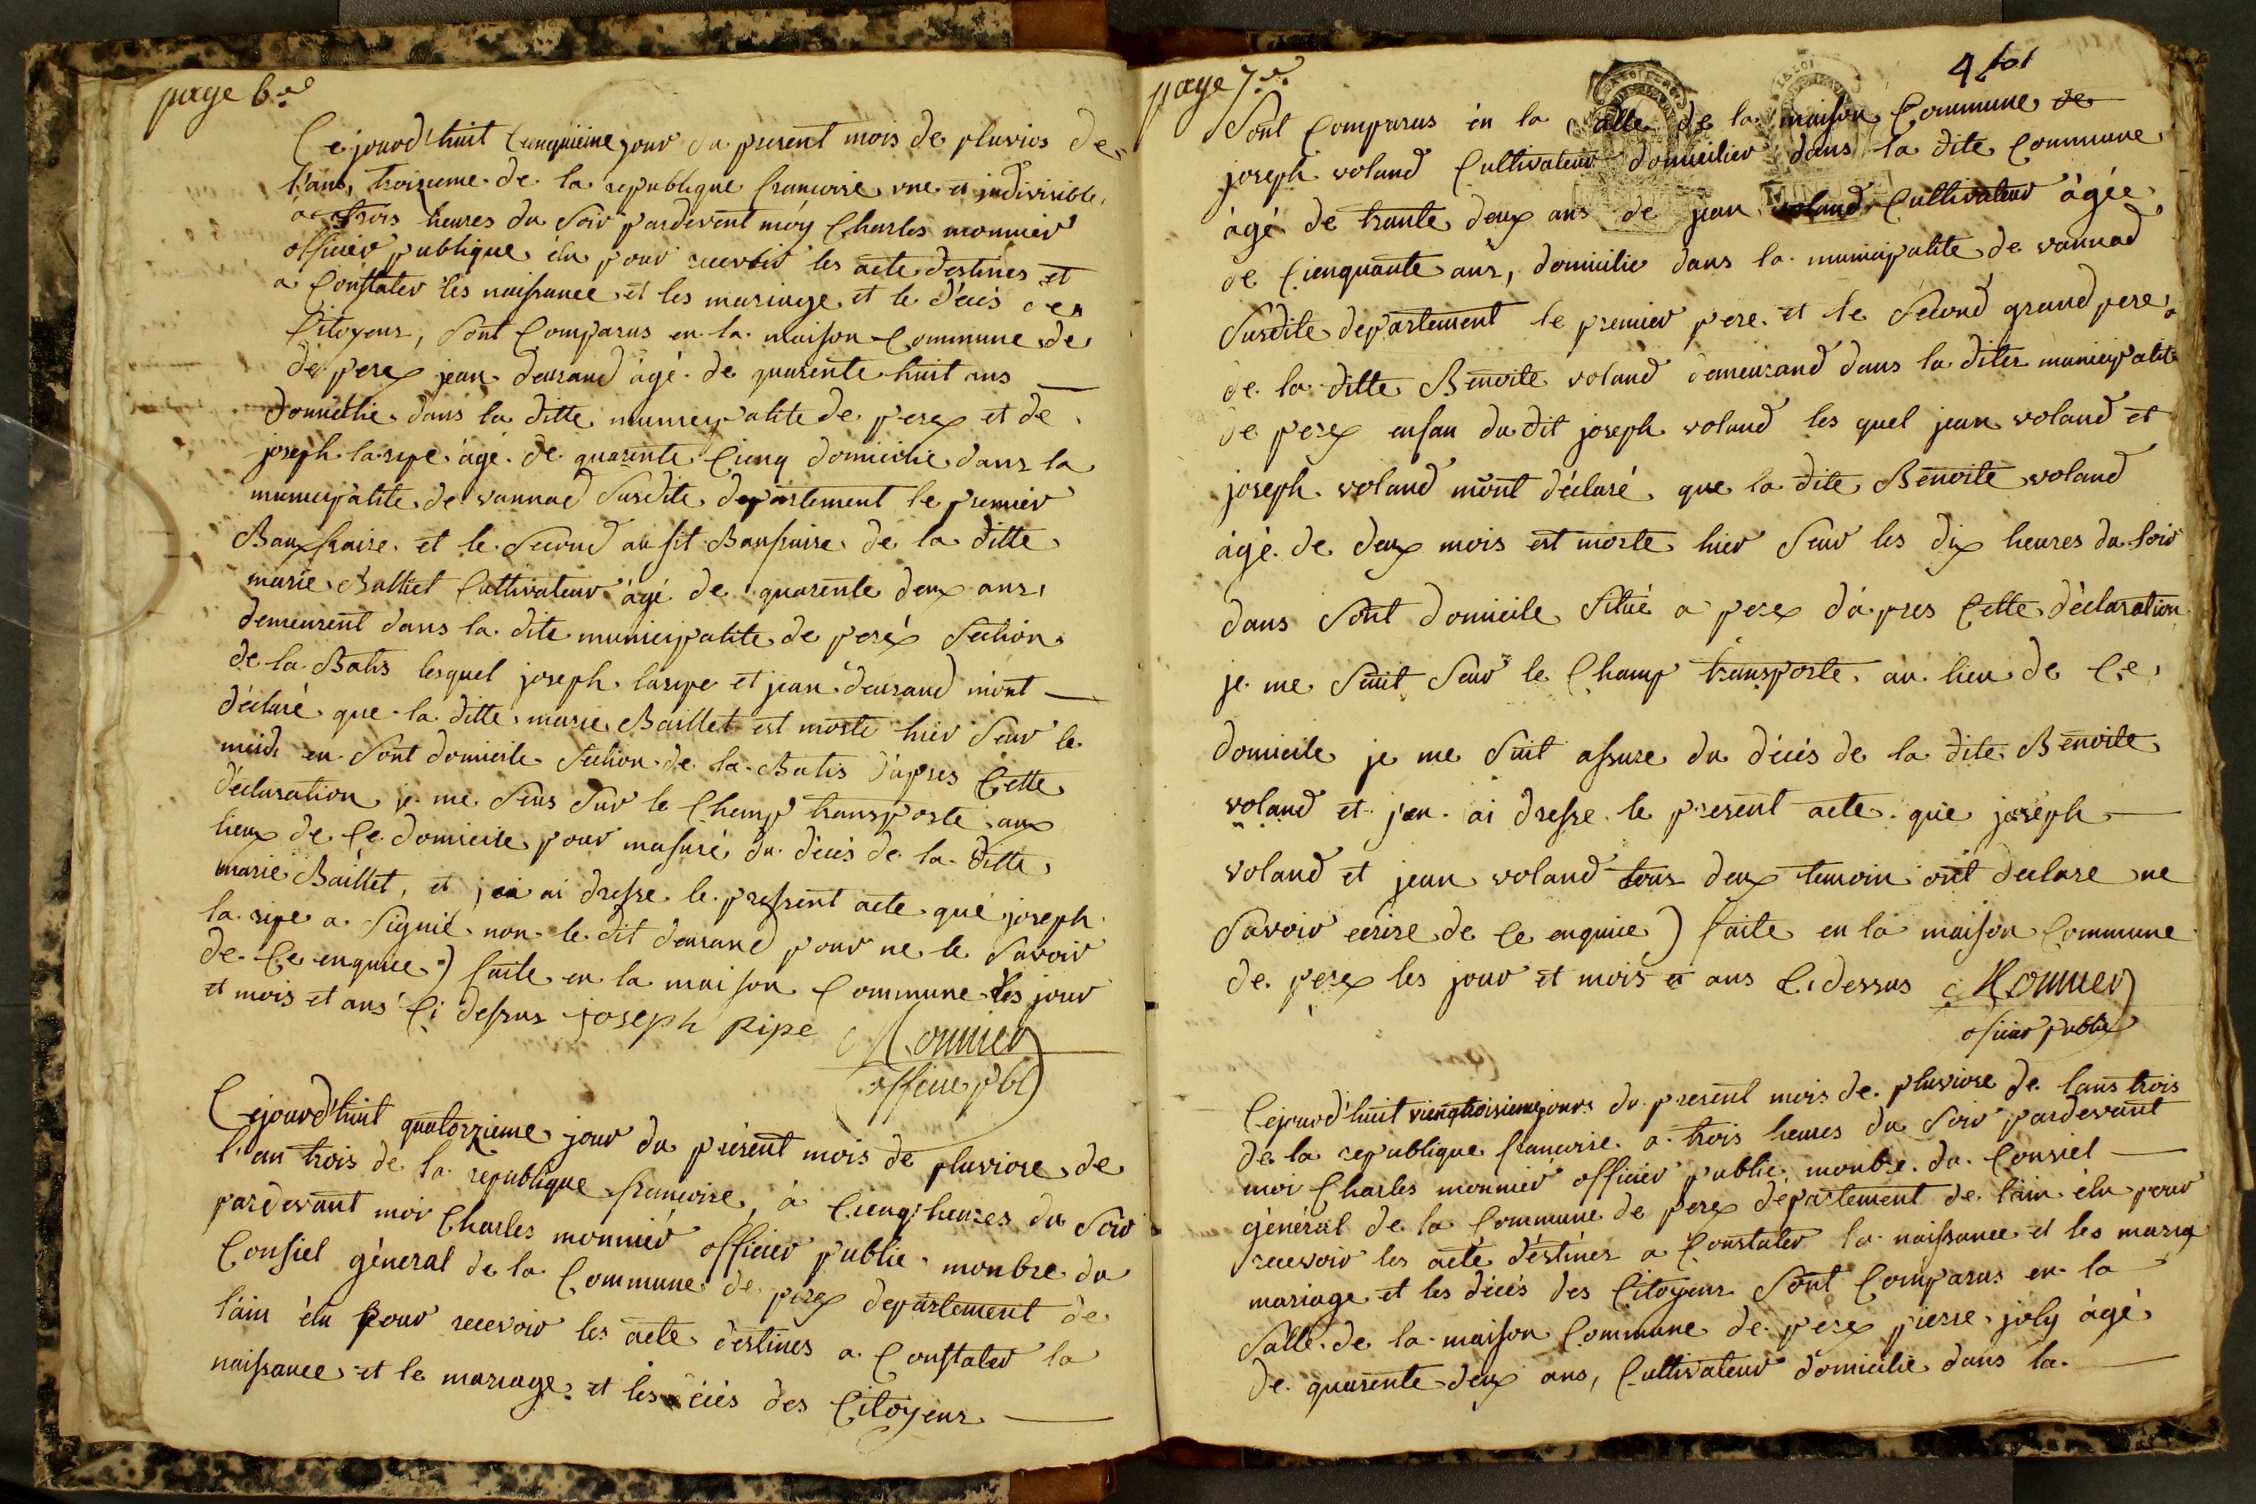 page 6.e
Cejourd'huit Cinquiéme jour du present mois de pluvios de
l'ans, troisieme de la republique francoise une et indivisible,
à trois heures du Soir pardevent moy Charles monnier
officier publique élu pour recevoir les acte destines et
a Constater les naissance et les mariage et le décis des
Citoyens, Sont Comparus en la maison Commune de
de perex jean durand âgé de quarente huit ans
domicilie dans la ditte municipalite de perex et de
joseph la ripe âgé de quarente Cienq domicilie dans la
municipalite de vannad Susdite departement le premier
Bauxfraire et le Second au sit Baufraire de la ditte
marie Balliet Cultivateur âgé de quarente deux ans,
demeurent dans la dite municipalite de perex Section
de la Batis lesquel joseph laripe et jean deurand m'ont
déclaré que la ditte marie Baillet est morte hier Seur le
midi en Sont domicile Section de la Batis d'apres Cette
déclaration je me Seus Sur le Champ transporte aux
lieux de Ce domicile pour massuré du décis de la ditte
marie Baillet, et j'en ai dresse le pressent acte que joseph
la ripe a Signié non le dit deurand pour ne le Savoir
de Ce enquice) faite en la maison Commune les jour
et mois et ans Ci dessus joseph Ripe
Monnier
officie pbl
Cejourd'huit quatorzieme jour du présent mois de pluviose de
l'an trois de la republique francoise, à Cienq heures du Soir
pardevant moi Charles monnier officier public monbre du
Consiel géneral de la Commune de perex departement de
l'ain élu pour recevoir les acte déstines a Constater la
naissance et le mariage et les décis des Citoyens
page 7.e
4
Sont Comparus én la Salle de la maison Commune de
joseph voland Cultivateur domicilier dans la dite Commune
âgé de trante deux ans de jean voland Cultivateur âgée
de Cienquante ans, domicilie dans la municipalite de vannad
Susdite departement le premier pere et le Second grand pere
de la ditte Benoite voland demeurand dans la dites municipalite
de perex enfan du dit joseph voland les quel jean voland et
joseph voland mont déclaré que la dite Benoite voland
âgé de deux mois est morte hier Seur les dix heures du Soir
dans Sont domicile Situé a perex d'apres Cette déclaration
je me Suit Seur le Champ transporte au lieu de Ce
domicile je me Suit assure du décis de la dite Benoite
voland et j'en ai dresse le present acte que joseph
voland et jean voland tous deux temoin ont declare ne
Savoir ecrire de Ce enquice) faite en la maison Commune
de perex les jour et mois et ans Ci dessus Monnier
oficier public
Cejourd'huit vienqtroisieme jours du present mois de pluviose de lans trois
de la republique francoise a trois heures du Soir pardevant
moi Charles monnier officier public monbre du Consiel
géneral de la Commune de perex département de l'ain élu pour
recevoir les acte déstines a Constater la naissance et les maria
mariage et les décis des Citoyens Sont Comparus en la
Salle de la maison Commune de perex pierre joly âgé
de quarente deux ans, Cultivateur domicilie dans la